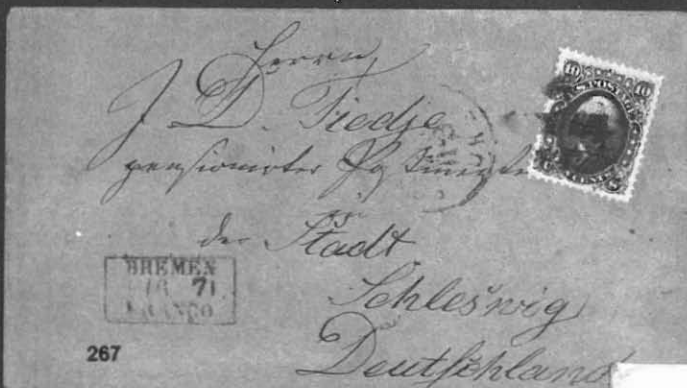 Herrn
J. D. Tiedje
pensionirter
der Stadt
Schleswig
Deutschland
10 10
U.S. POSTAGE
BREMEN
71
FRANCO
267